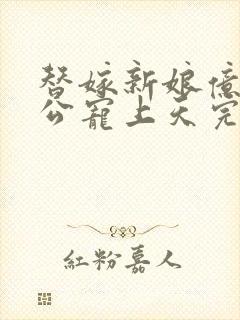 替嫁新娘億
公寵上天完
紅粉嘉人